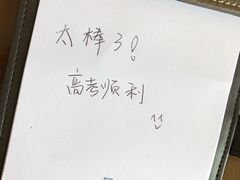 太棒了!
高考顺利